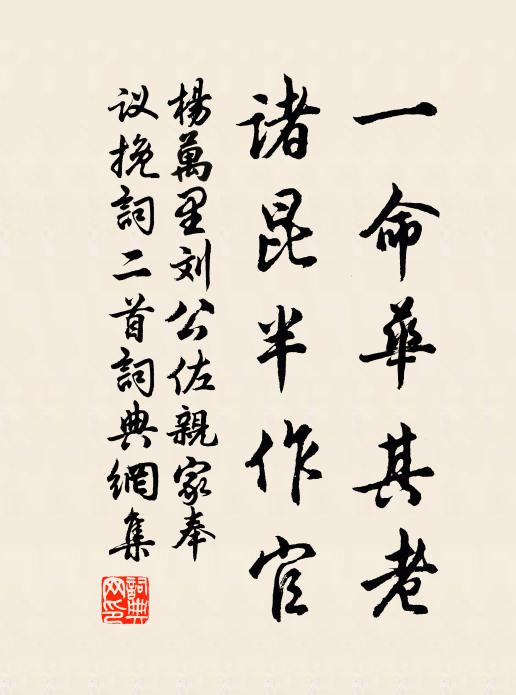 一命華其老
諸昆半作官
楊萬里刘公佐親家奉
议挽詞二首詞典網集
詞典
网印